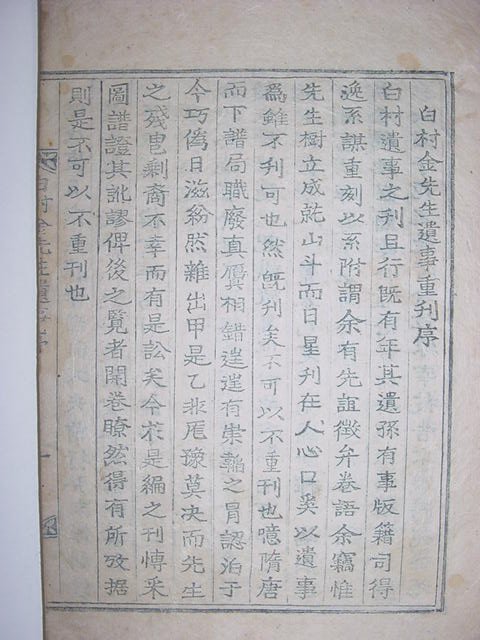 白村金先生遺事重刋序
白村遺事之刋且行既有年其遺孫有事版籍司得
逸系謀重刻以系附謂余有先誼徵弁卷語余竊惟
先生樹立成就山斗而日星刋在人心口奚以遺事
爲雖不刋可也然旣刋矣不可以不重刋也噫隋唐
而下譜局職廢眞贋相錯遑遑有崇韜之冐認泊于
今巧僞日滋紛然雜出甲是乙非巵豫莫决而先生
之殘㫙剩裔不幸而有是訟矣今於是編之刋愽采
圖譜證其訛謬俾後之覽者開卷瞭然得有所攷据
則是不可以不重刋也
白村金先生遺事序 一